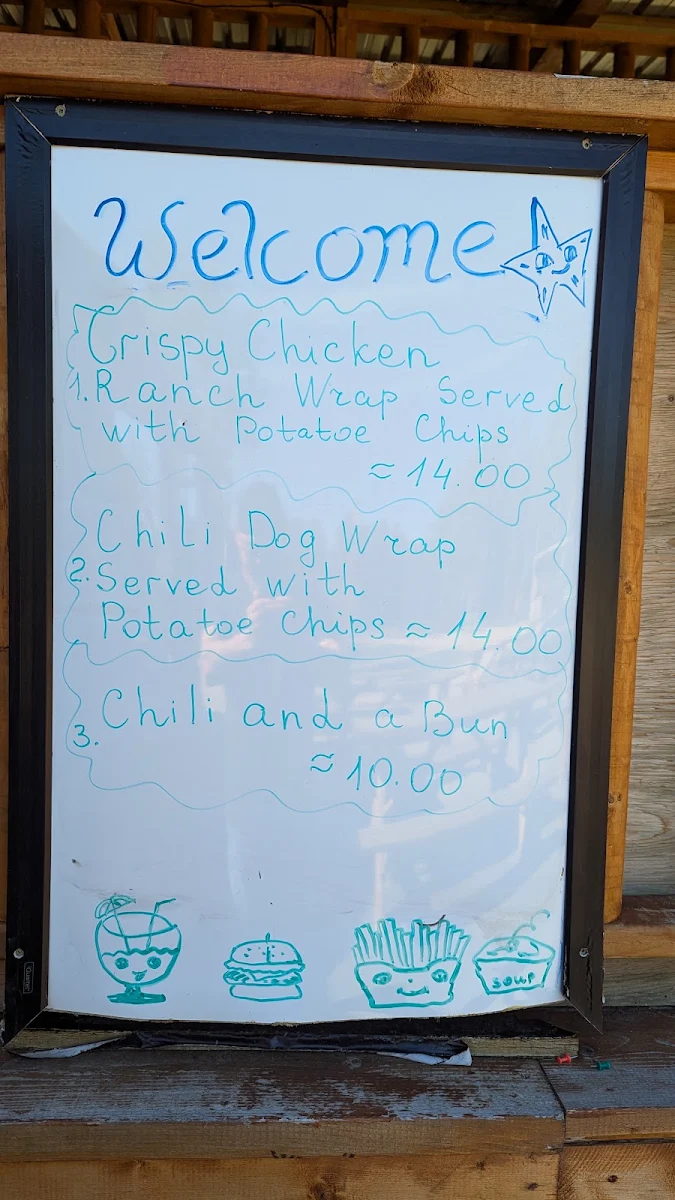 Welcome
Crispy Chicken
1. Ranch Wrap Served
with Potatoe Chips
≈ 14.00
Chili Dog Wrap
2. Served with
Potatoe Chips ≈ 14.00
Chili and a Bun
3.
≈ 10.00
soup
Quartet